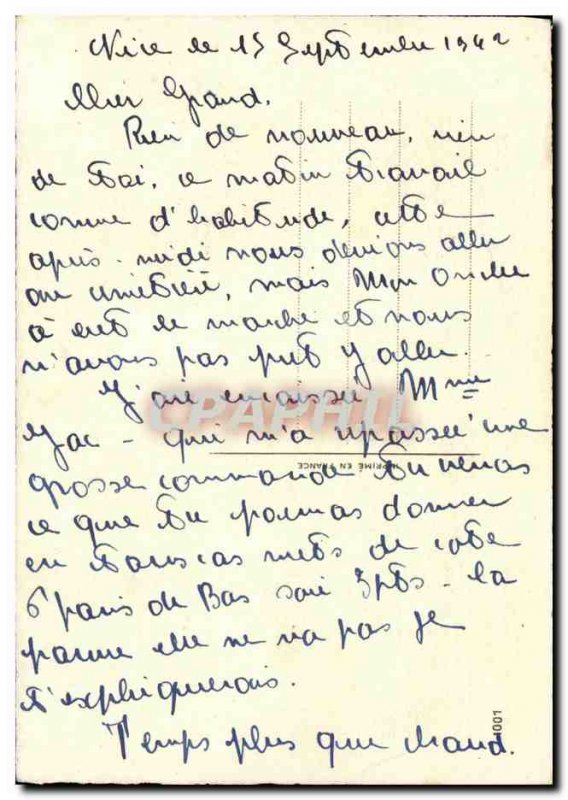 Nice le 15 Septembre 1942
Mon Grand.
Rien de nouveau, rien
de toi, ce matin travail
comme d'habitude, cette
après-midi nous devions aller
au cimetière, mais Mon Oncle
à eut le marché et nous
n'avons pas put y aller.
J'ai encaissé Mme
Jac - qui m'a repassée une
grosse commande tu verras
ce que tu pourras donner
en tous cas mets de côté
6 paires de Bas soie 3pts - la
pauvre elle ne va pas je
t'expliquerais.
Temps plus que chaud.
CPAPHIL
IMPRIMÉ EN FRANCE
1001